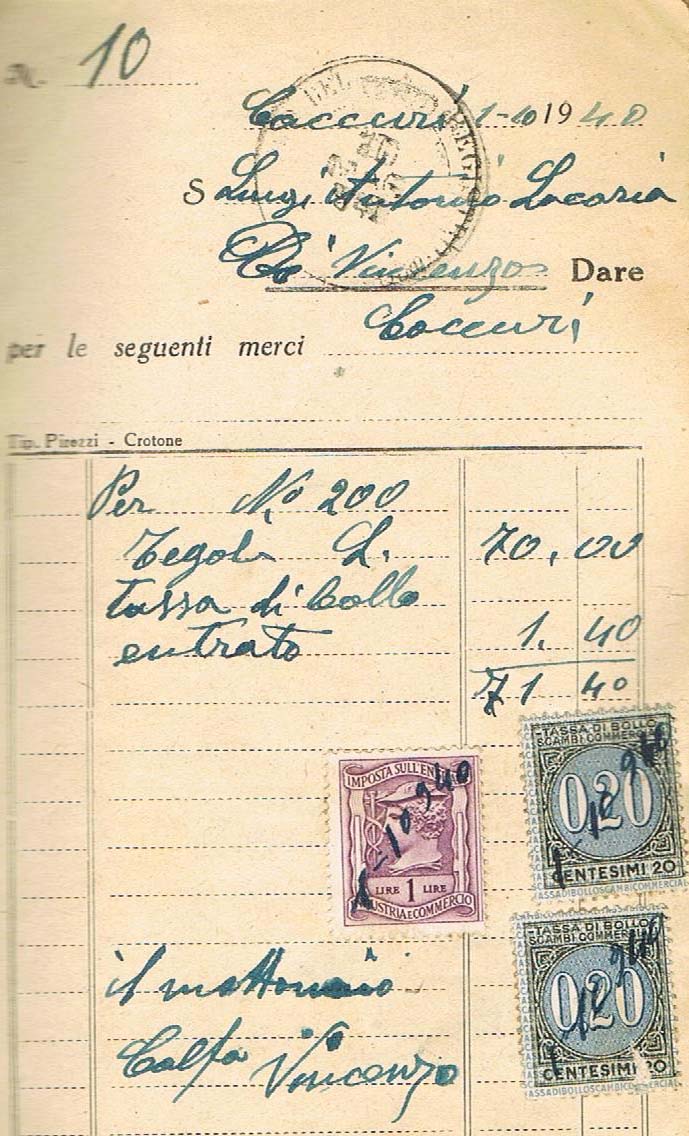 N. 10
Caccuri 1-10 1940
S Luigi Antonio Lacaria
Vincenzo Dare
per le seguenti merci Caccuri
Tip. Pirozzi - Crotone
Per N.º 200
Tegole L. 70,00
tassa di bollo
entrato 1. 40
71 40
TASSA DI BOLLO
SCAMBI COMMERCIALI
0,20
1-10 940
CENTESIMI 20
TASSA DI BOLLO SCAMBI COMMERCIALI
IMPOSTA SULL'EN
1-10 940
LIRE 1 LIRE
INDUSTRIA E COMMERCIO
TASSA DI BOLLO
SCAMBI COMMERCIALI
0,20
1-10 940
CENTESIMI 20
TASSA DI BOLLO SCAMBI COMMERCIALI
il mattonaio
Calfa Vincenzo